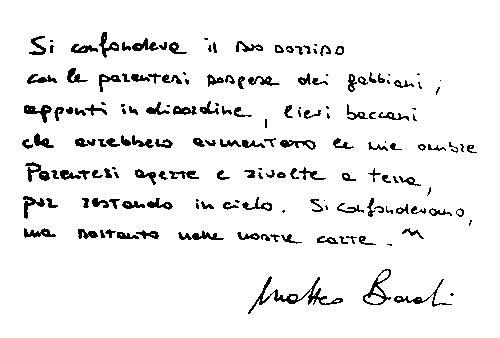 Si confondeva il suo sorriso
con le parentesi sospese dei gabbiani,
appunti in disordine, lievi baccani
che avrebbero aumentato le mie ombre
Parentesi aperte e rivolte a terra,
pur restando in cielo. Si confondevano,
ma soltanto nelle nostre carte.
Matteo